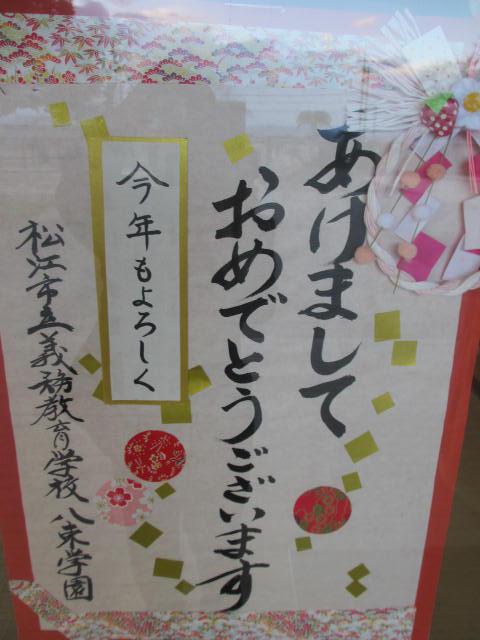 あけまして
おめでとうございます
今年もよろしく
松江市立義務教育学校八束学園